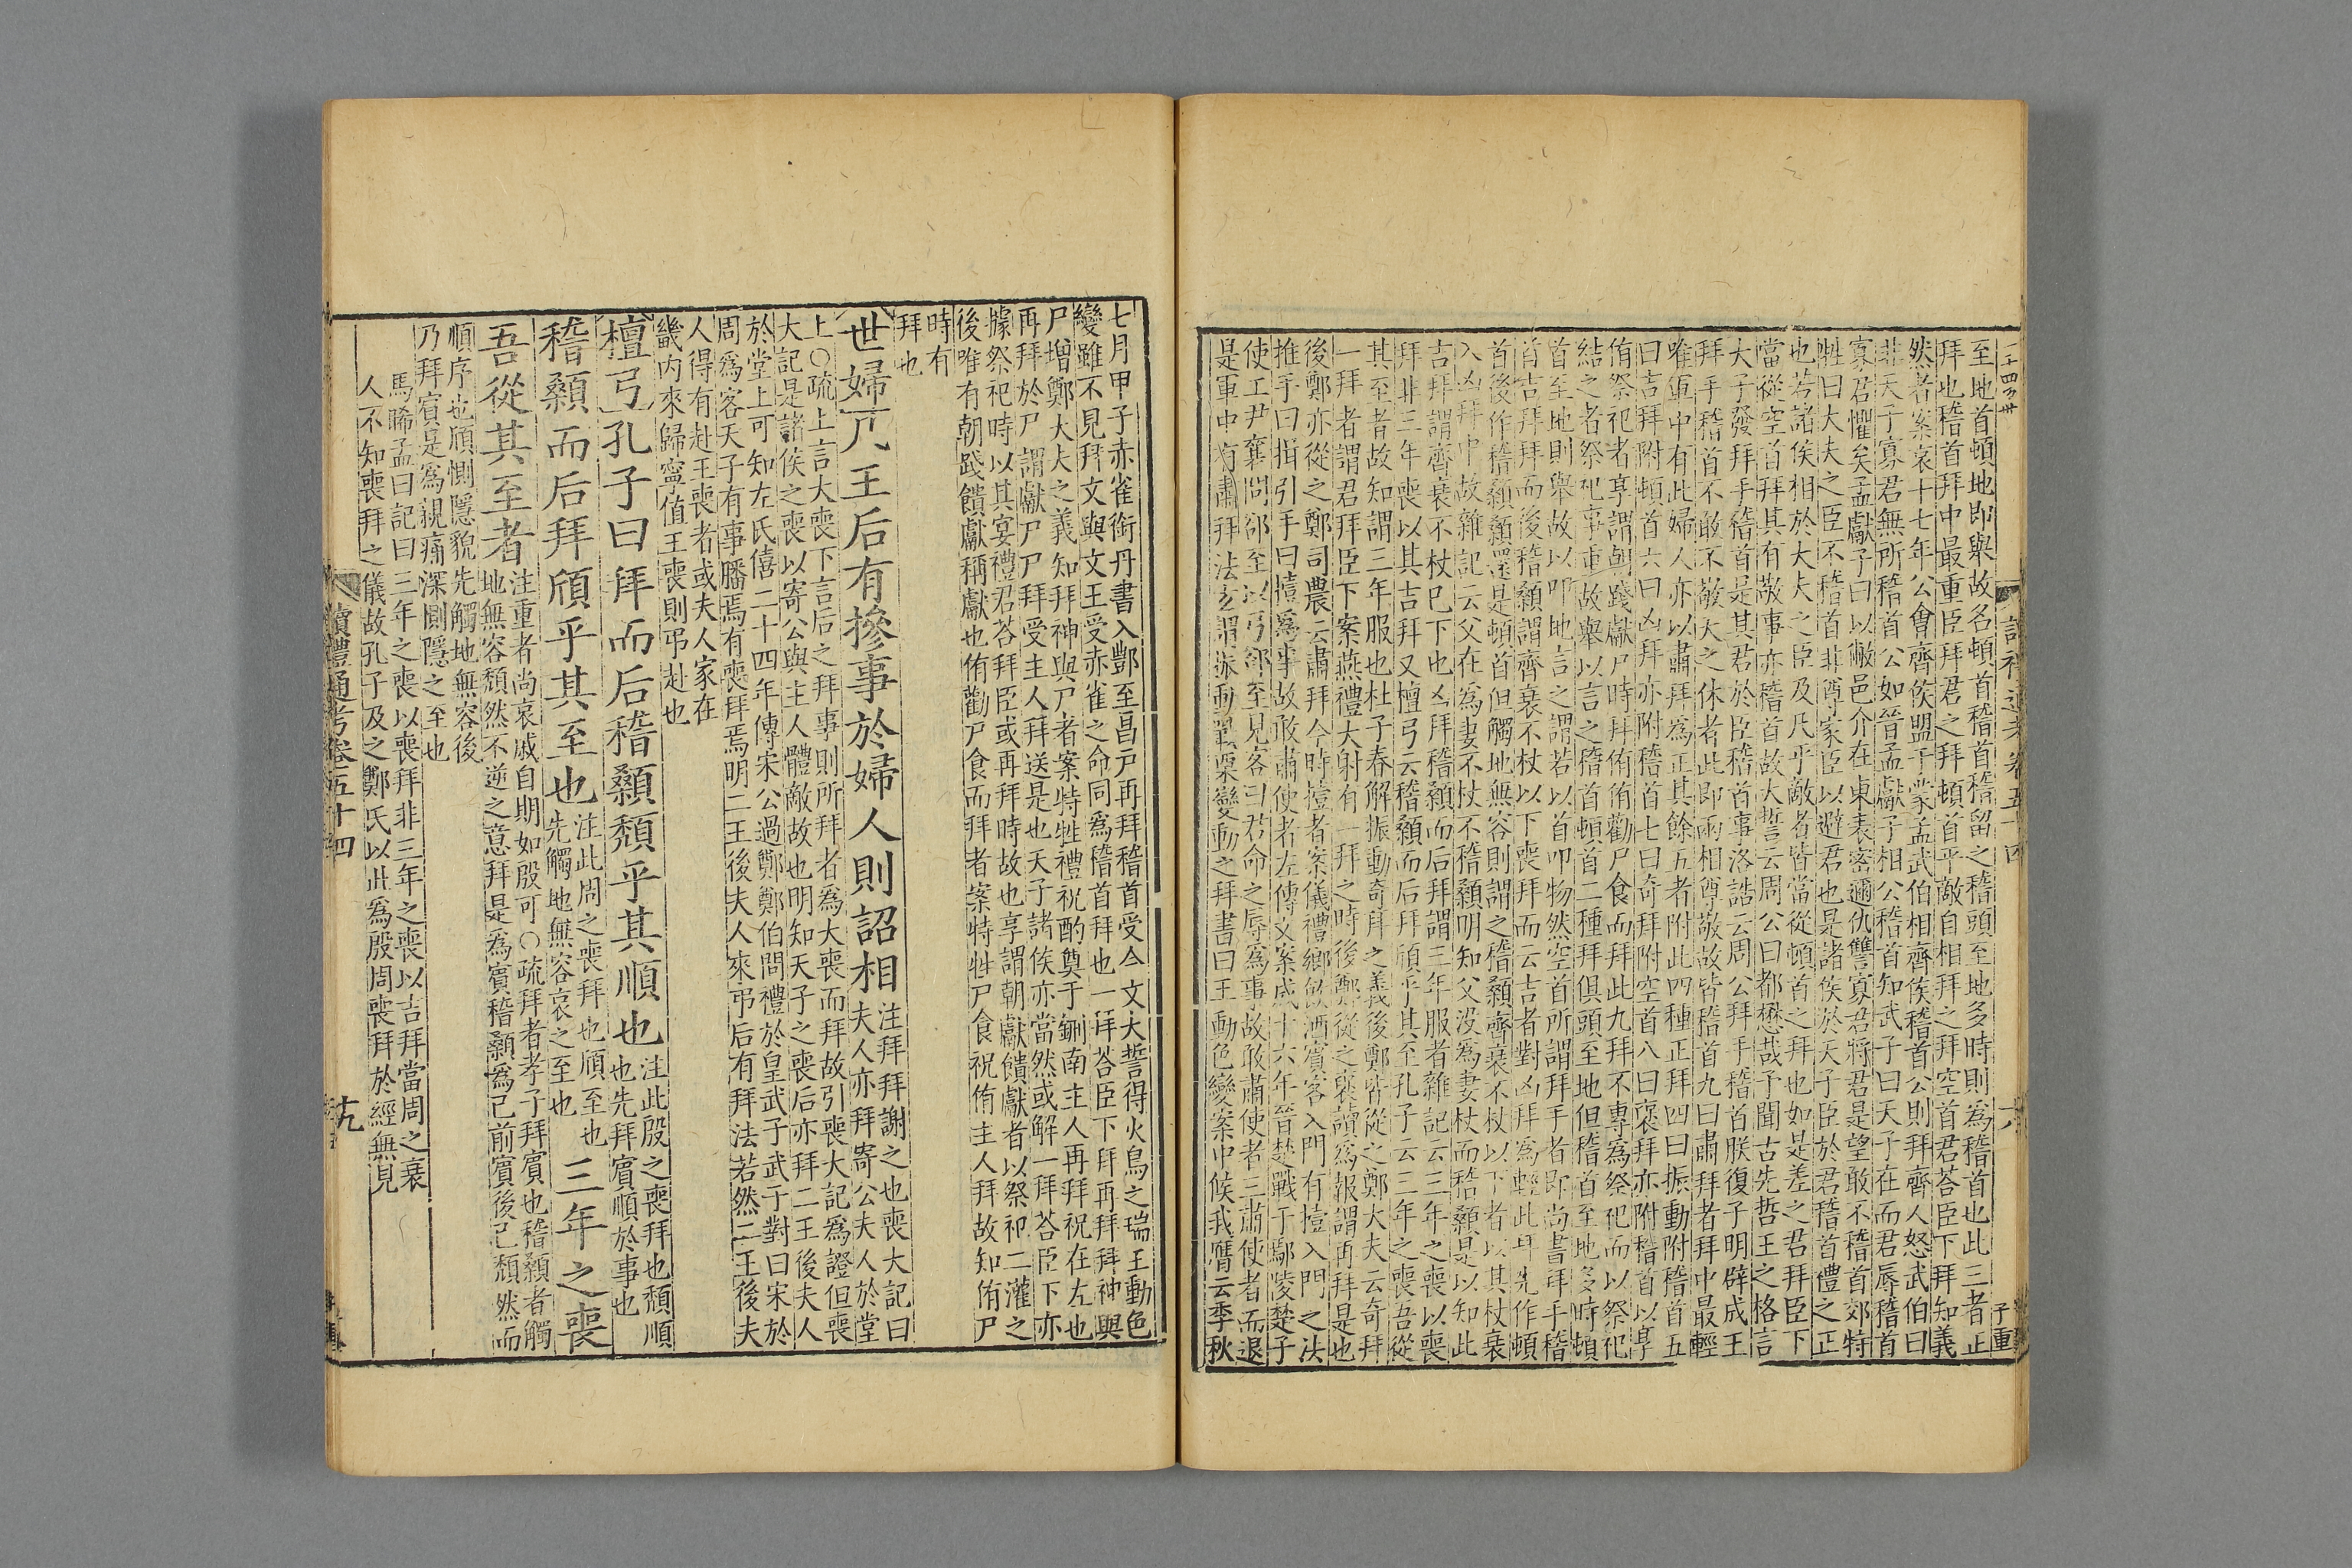 至地首頓地即舉故名頓首稽首稽留之稽頭至地多時則為稽首也此三者正
拜也稽首拜中最重臣拜君之拜頓首平敵自相拜之拜空首君荅臣下拜知義
然者案哀十七年公會齊侯盟于蒙孟武伯相齊侯稽首公則拜齊人怒武伯曰
非天子寡君無所稽首公如晉孟獻子相公稽首知武子曰天子在而君辱稽首
寡君懼矣孟獻子曰以敝邑介在東表密邇仇讐寡君將君是望敢不稽首郊特
牲曰大夫之臣不稽首非尊家臣以避君也是諸侯於天子臣於君稽首禮之正
也若諸侯相於大夫之臣及凡乎敵者皆當從頓首之拜也如是差之君拜臣下
當從空首拜其有敬事亦稽首故大誓云周公曰都懋哉予聞古先哲王之格言
大子發拜手稽首是其君於臣稽首事洛誥云周公拜手稽首朕復子明辟成王
拜手稽首不敢不敬天之休者此即兩相尊敬故皆稽首九曰肅拜者拜中最輕
唯軍中有此婦人亦以肅拜爲正其餘五者附此四種正拜四曰振動附稽首五
曰吉拜附頓首六曰凶拜亦附稽首七曰奇拜附空首八曰褒拜亦附稽首以享
侑祭祀者享謂朝踐獻尸時拜侑侑勸尸食而拜此九拜不專爲祭祀而以祭祀
結之者祭祀事重故舉以言之稽首頓首二種拜俱頭至地但稽首至地多時頓
首至地則舉故以叩地言之謂若以首叩物然空首所謂拜手者即尚書拜手稽
首吉拜拜而後稽顙謂齊衰不杖以下喪拜而云吉者對凶拜爲輕此拜先作頓
首後作稽顙顙還是頓首但觸地無容則謂之稽顙齊衰不杖以下者以其杖衰
入凶拜中故雜記云父在爲妻不杖不稽顙明知父没爲妻杖而稽顙是以知此
吉拜謂齊衰不杖巳下也凶拜稽顙而后拜謂三年服者雜記云三年之喪以喪
拜非三年喪以其吉拜又檀弓云稽顙而后拜頎乎其至孔子云三年之喪吾從
其至者故知謂三年服也杜子春解振動奇拜之義後鄭皆從之鄭大夫云奇拜
一拜者謂君拜臣下案燕禮大射有一拜之時後鄭從之褒讀爲報謂再拜是也
後鄭亦從之鄭司農云肅拜今時撎者案儀禮鄉飲酒賓客入門有撎入門之法
推手曰揖引手曰撎爲事故敢肅使者左傳文案成十六年晉楚戰于鄢陵楚子
使工尹襄問郤至以弓郤至見客曰君命之辱爲事故敢肅使者三肅使者而退
是軍中有肅拜法玄謂振動戰栗變動之拜書曰王動色變案中候我應云季秋
七月甲子赤雀銜丹書入酆至昌戸再拜稽首受今文大誓得火鳥之瑞王動色
變雖不見拜文與文王受赤雀之命同爲稽首拜也一拜荅臣下拜再拜拜神與
尸增鄭大夫之義知拜神與尸者案特牲禮祝酌奠于鉶南主人再拜祝在左也
再拜於尸謂獻尸尸拜受主人拜送是也天子諸侯亦當然或解一拜荅臣下亦
據祭祀時以其宴禮君荅拜臣或再拜時故也享謂朝獻饋獻者以祭祀二灌之
後唯有朝踐饋獻稱獻也侑勸尸食而拜者案特牲尸食祝侑主人拜故知侑尸
時有
拜也
世婦 凡王后有摻事於婦人則詔相 注拜拜謝之也喪大記曰夫人亦拜寄公夫人於堂
上○疏上言大喪下言后之拜事則所拜者爲大喪而拜故引喪大記爲證但喪
大記是諸侯之喪以寄公與主人體敵故也明知天子之喪后亦拜二王後夫人
於堂上可知左氏僖二十四年傳宋公過鄭鄭伯問禮於皇武子武子對曰宋於
周爲客天子有事膰焉有喪拜焉明二王後夫人來弔后有拜法若然二王後夫
人得有赴王喪者或夫人家在
畿内來歸寧值王喪則弔赴也
檀弓 孔子曰拜而后稽顙頽乎其順也 注此殷之喪拜也頽順也先拜賓順於事也
稽顙而后拜頎乎其至也 注此周之喪拜也頎至也先觸地無容哀之至也 三年之喪
吾從其至者 注重者尚哀戚自期如殷可○疏拜者孝子拜賓也稽顙者觸地無容頽然不逆之意拜是爲賓稽顙爲己前賓後己頽然而
順序也頎惻隱貌先觸地無容後
乃拜賓是爲親痛深惻隱之至也
馬晞孟曰記曰三年之喪以喪拜非三年之喪以吉拜當周之衰
人不知喪拜之儀故孔子及之鄭氏以此爲殷周喪拜於經無見
讀禮通考卷五十四
十九